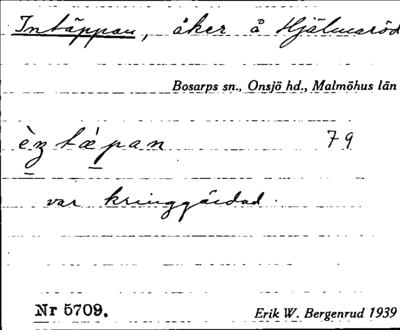 Intäppan, åker å Hjälmaröd
Bosarps sn., Onsjö hd., Malmöhus län
79
var kringgärdad.
Nr 5709.
Erik W. Bergenrud 1939